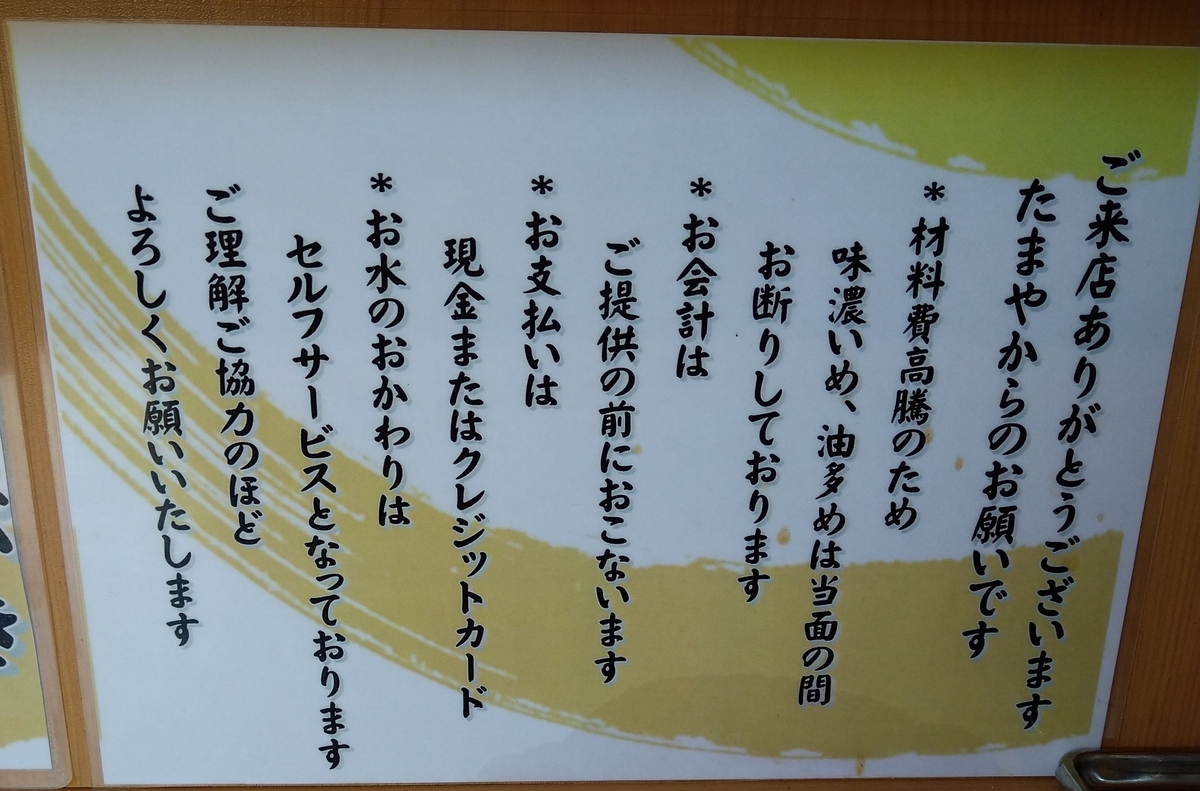 ご来店ありがとうございます
たまやからのお願いです
＊材料費高騰のため
味濃いめ、油多めは当面の間
お断りしております
＊お会計は
ご提供の前におこないます
＊お支払いは
現金またはクレジットカード
＊お水のおかわりは
セルフサービスとなっております
ご理解ご協力のほど
よろしくお願いいたします